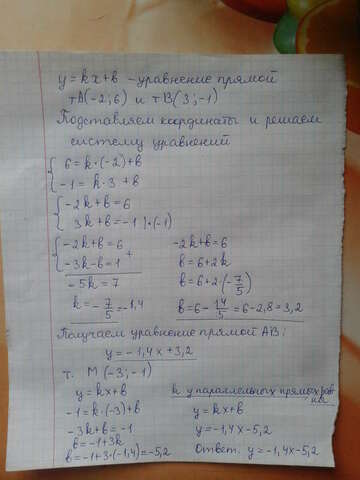 y = kx+b - уравнение прямой
т А(-2; 6) и т В(3; -1)
Подставляем координаты и решаем
систему уравнений
{ 6 = k·(-2)+b
-1 = k·3 + b
{ -2k+b = 6
3k+b = -1 |·(-1)
{ -2k+b = 6
-3k-b = 1 +
-5k = 7
k = -7/5 = -1,4
-2k+b = 6
b = 6+2k
b = 6+2·(-7/5)
b = 6 - 14/5 = 6-2,8 = 3,2
Получаем уравнение прямой АВ:
y = -1,4x+3,2
т. М (-3; -1)
y = kx+b
-1 = k·(-3)+b
-3k+b = -1
b = -1+3k
b = -1+3·(-1,4) = -5,2
k у параллельных прямых рав
ны
y = kx+b
y = -1,4x-5,2
Ответ. y = -1,4x-5,2